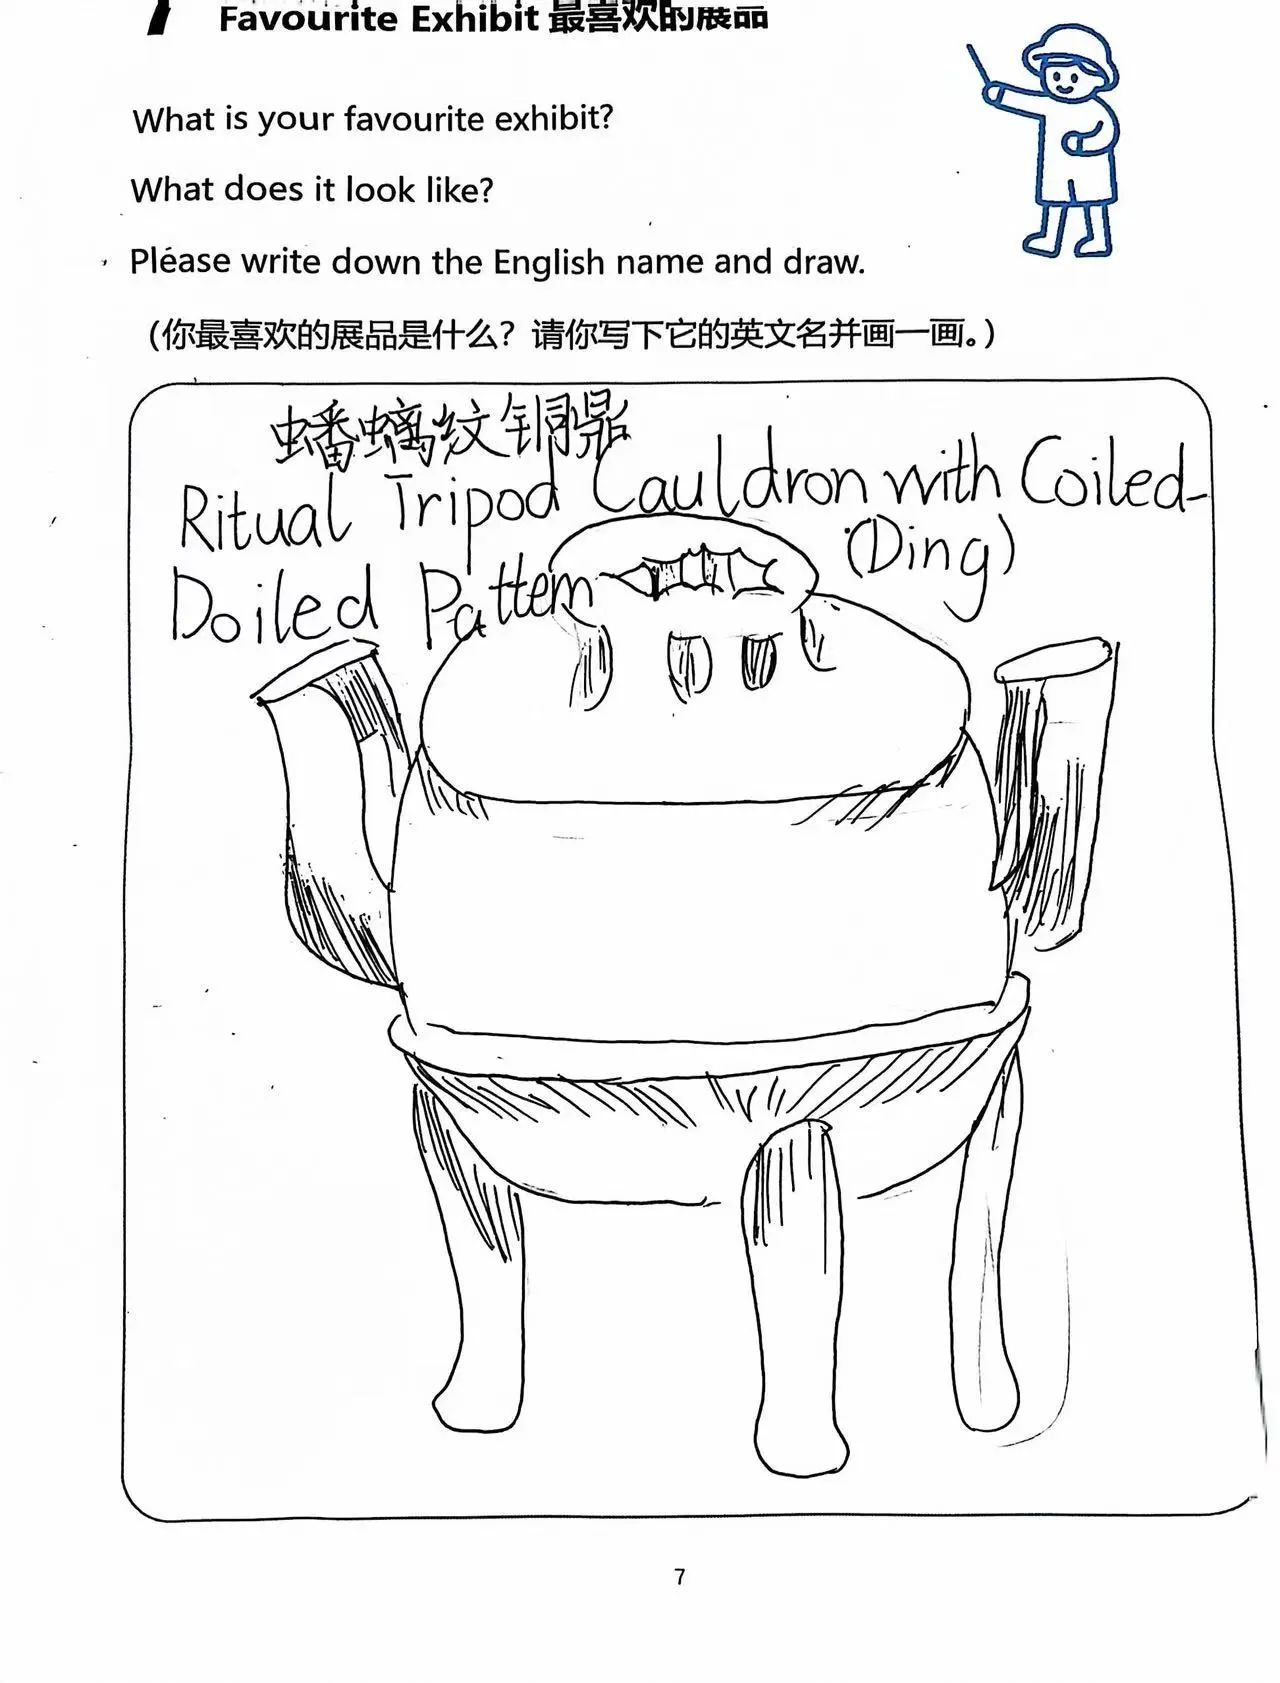 Favourite Exhibit 最喜欢的展品
What is your favourite exhibit?
What does it look like?
Please write down the English name and draw.
（你最喜欢的展品是什么？请你写下它的英文名并画一画。）
蟠螭纹铜鼎
Ritual Tripod Cauldron with Coiled-
(Ding)
Doiled Pattern
7